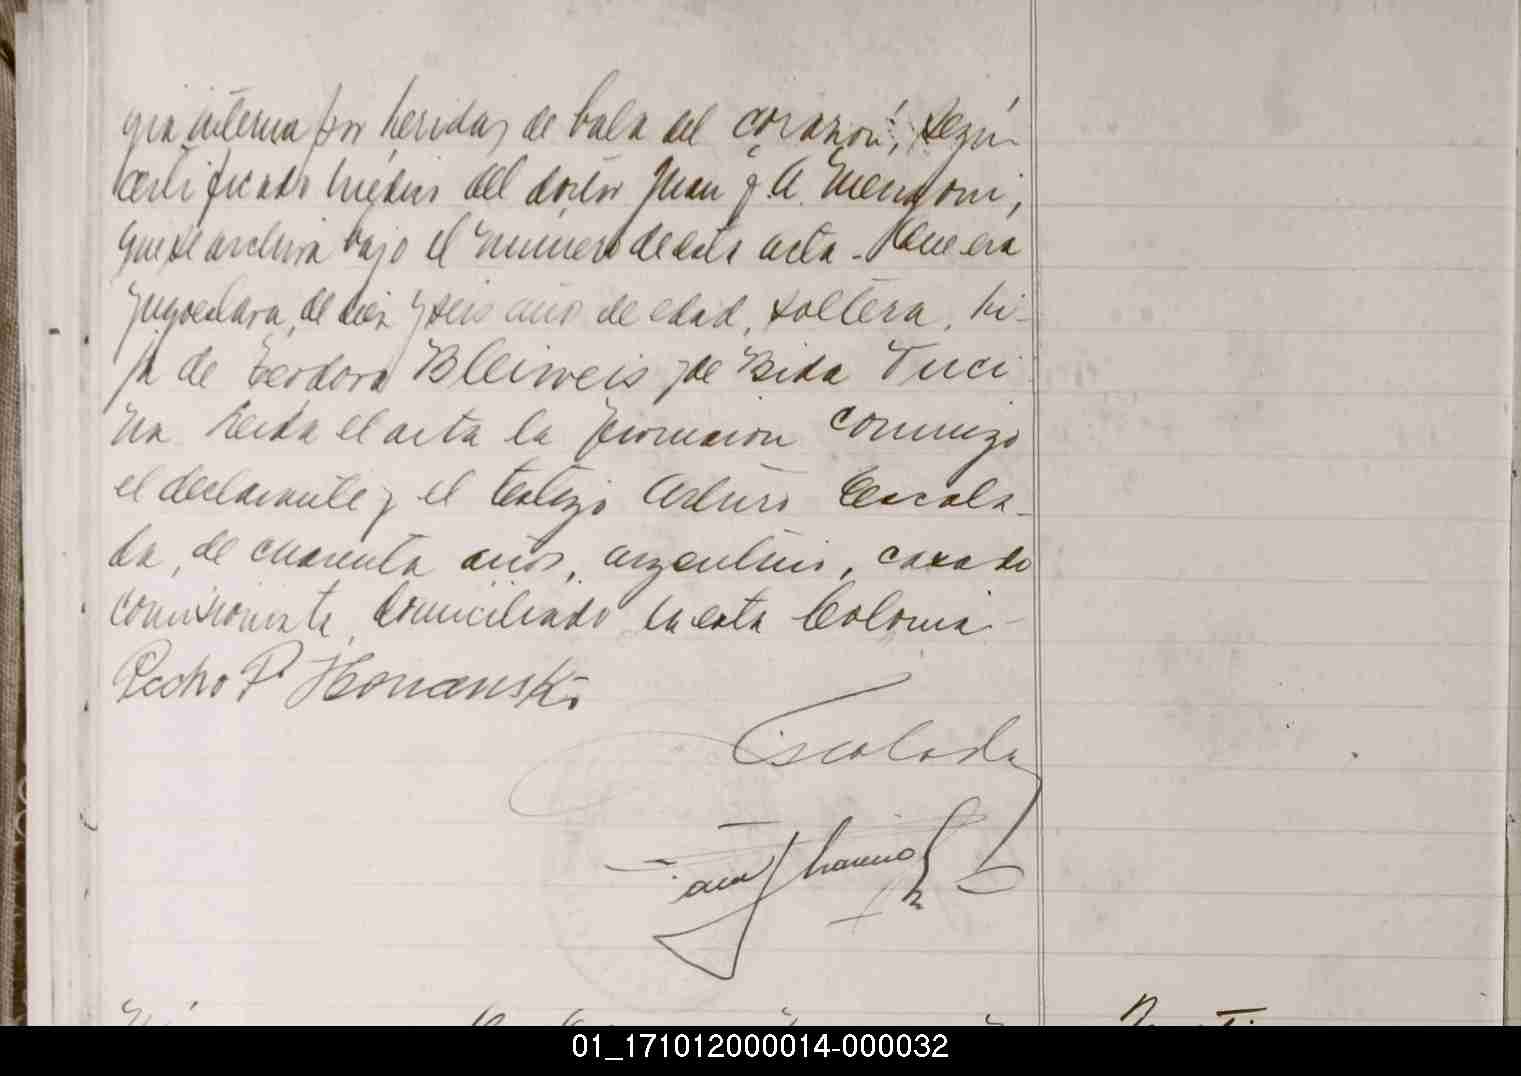 gia interna por heridas de bala del corazón, según
certificado médico del doctor Juan J. A. Mengoni,
que se archiva bajo el número de esta acta - Que era
yugoeslava, de diez y seis años de edad, soltera, hi-
ja de Teodoro Bleiweis y de Bida Tuci
na Leida el acta la firmaron conmigo
el declarante y el testigo Arturo Escala-
da, de cuarenta años, argentino, casado
comisionista, domiciliado en esta Colonia -
Pedro P. Honanski
Escalada
01_171012000014-000032